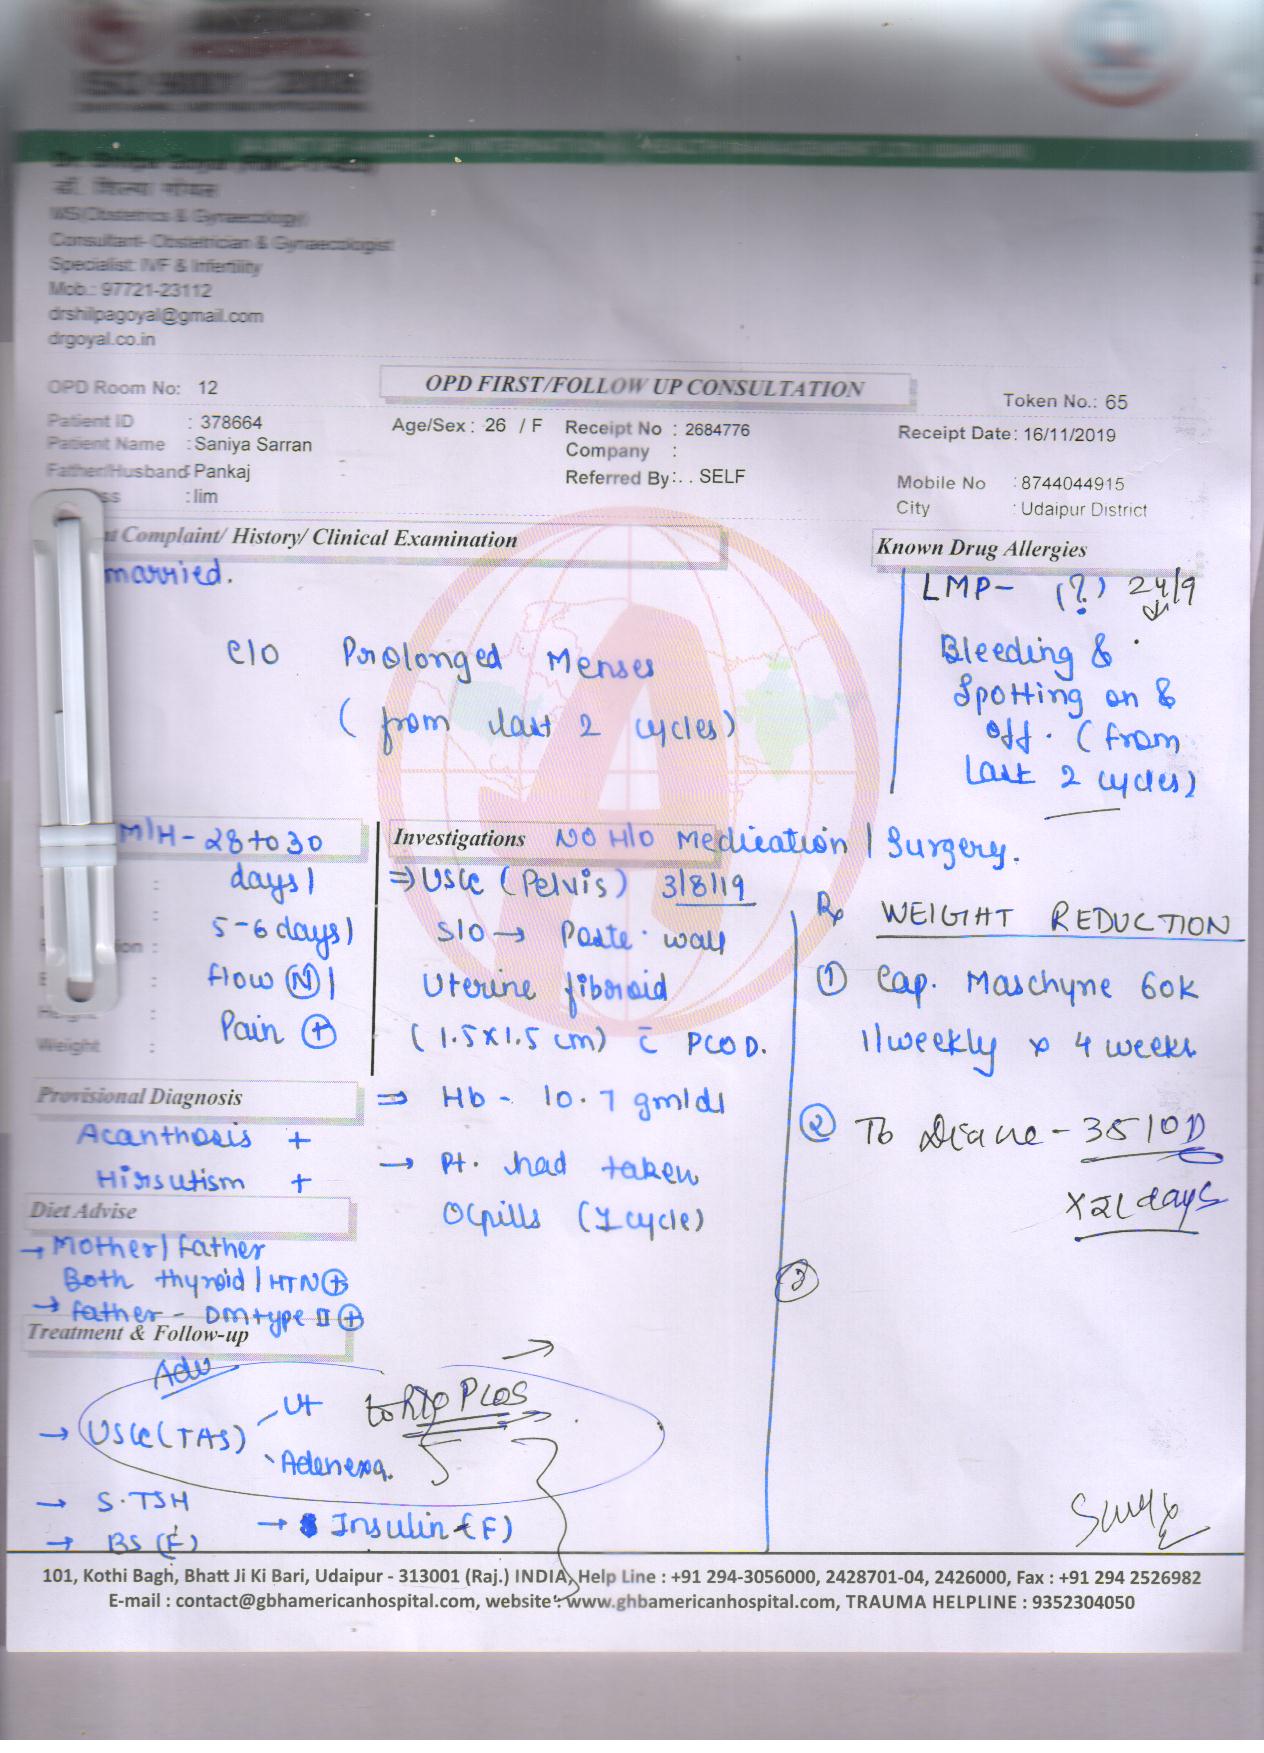 AMERICAN
HOSPITAL
ISO 9001 : 2008
डॉ. शिल्पा गोयल
MS(Obstetrics & Gynaecology)
Consultant- Obstetrician & Gynaecologist
Specialist: IVF & Infertility
Mob.: 97721-23112
drshilpagoyal@gmail.com
drgoyal.co.in
OPD Room No: 12
OPD FIRST/FOLLOW UP CONSULTATION
Token No.: 65
Patient ID : 378664
Age/Sex : 26 / F
Receipt No : 2684776
Receipt Date: 16/11/2019
Patient Name : Saniya Sarran
Company :
Father/Husband: Pankaj
Referred By:. . SELF
Mobile No : 8744044915
ss : Iim
City : Udaipur District
t Complaint/ History/ Clinical Examination
Known Drug Allergies
married.
LMP- (?) 24/9
Bleeding &
Spotting on &
off. (from
last 2 cycles)
C/O Prolonged Menses
(from last 2 cycles)
M/H - 28 to 30
days/
5-6 days/
flow (N)/
Pain (+)
Height :
Weight :
Investigations NO H/O Medication / Surgery.
⇒ USG (Pelvis) 3/8/19
S/O → Poste. wall
Uterine fibroid
(1.5x1.5 cm) c̄ PCOD.
⇒ Hb - 10.7 gm/dl
→ Pt. had taken
OCpills (1 cycle)
Rx WEIGHT REDUCTION
① Cap. Maschyne 60K
1/weekly x 4 weeks
② Tb Diane - 35 / OD
x 21 days
③
Provisional Diagnosis
Acanthosis +
Hirsutism +
Diet Advise
→ Mother/father
Both thyroid/HTN (+)
→ father - DM type II (+)
Treatment & Follow-up
Adv
→ USG (TAS) Ut to R/O PCOS
Adenexa.
→ S.TSH
→ BS (F)
→ Insulin (F)
101, Kothi Bagh, Bhatt Ji Ki Bari, Udaipur - 313001 (Raj.) INDIA, Help Line : +91 294-3056000, 2428701-04, 2426000, Fax : +91 294 2526982
E-mail : contact@gbhamericanhospital.com, website : www.ghbamericanhospital.com, TRAUMA HELPLINE : 9352304050